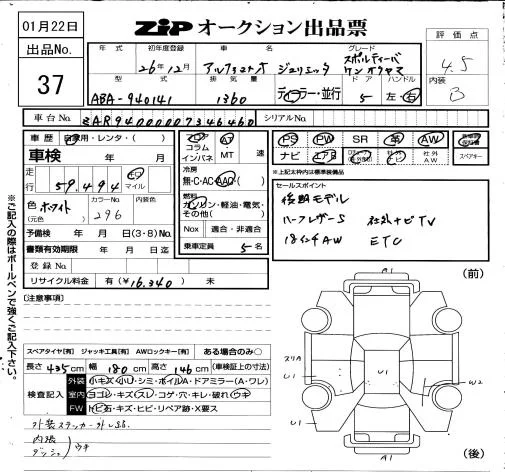 01月22日
ZIP オークション出品票
出品No. 37
評価点 4.5
内装 B
年式 初年度登録 車名 グレード
26年12月 アルファロメオ ジュリエッタ スポルティーバ
ケンオクヤマ
型式 排気量 ドア ハンドル
ABA-940141 1360 ディーラー・並行 5 左・右
車台No. ZAR94000007346460 シリアルNo.
車歴 自家用・レンタ・( )
車検 年 月
走行 59,494 km マイル
色 ホワイト (元色) カラーNo. 296 内装色
予備検 年 月 日(3・8)No.
書類有効期限 年 月 日迄
登録No.
リサイクル料金 有(¥16,340) 未
コラム インパネ MT 速
冷房 無・C・AC・AAC
燃料 ガソリン・軽油・電気・その他( )
Nox 適合・非適合
乗車定員 5名
PS PW SR 革 AW
ナビ エアB
スペアキー
※上記太枠内は標準装備品
セールスポイント
後期モデル
ハーフレザーS 社外ナビTV
18インチAW ETC
※ご記入の際はボールペンで強くご記入下さい。
[注意事項]
スペアタイヤ[有] ジャッキ工具[有] AWロックキー[有] ある場合のみ○
長さ 435cm 幅 180cm 高さ 146cm (車検証上の寸法)
検査記入
外装 小キズ・小U・シミ・ボイルA・ドアミラー(A・ワレ)
室内 ヨゴレ・キズ・スレ・コゲ・穴・キレ・破れ・ウキ
FW トビ石・キズ・ヒビ・リペア跡・X要ス
内張
ダッシュ ウキ
(前)
A1
スリA
U1
U1
W2
U1
U1
A1
(後)